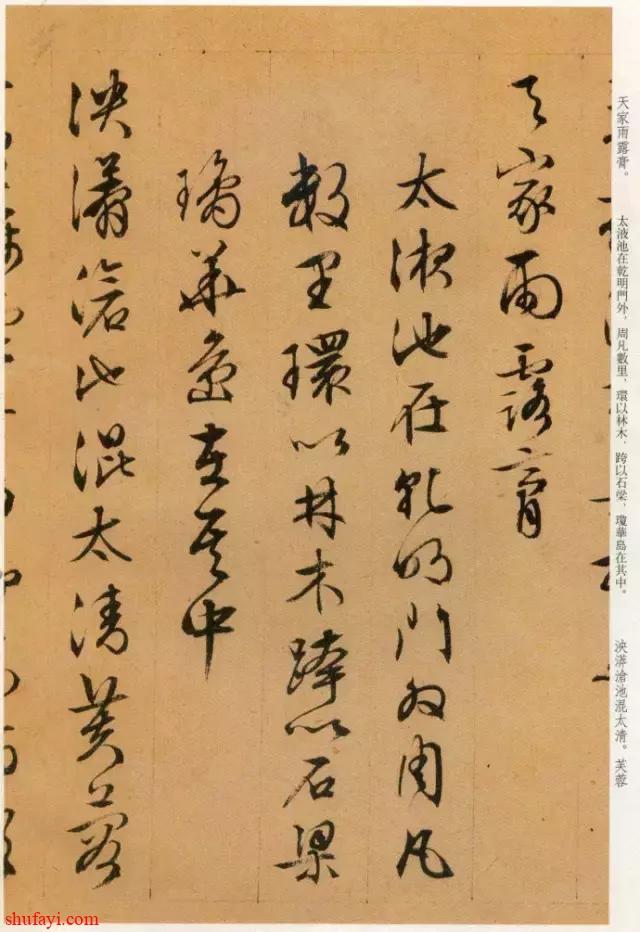 天家雨露膏
太液池在乾明門外周凡
數里環以林木跨以石梁
瓊華島在其中
泱漭滄池混太清芙蓉
天家雨露膏。 太液池在乾明門外，周凡數里，環以林木，跨以石梁，瓊華島在其中。 泱漭滄池混太清。芙蓉
shufayi.com